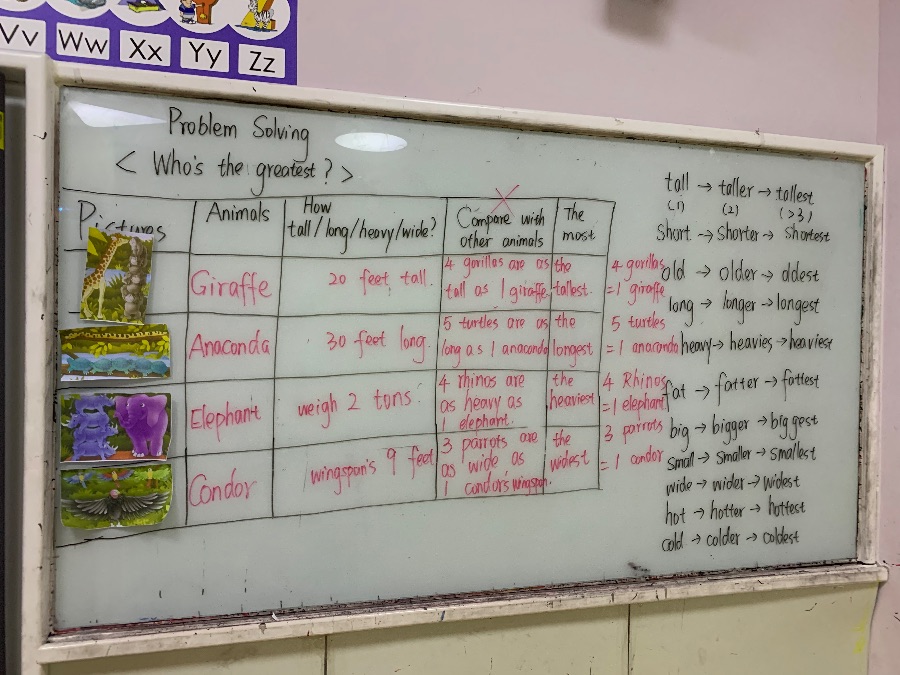 Vv Ww Xx Yy Zz
Problem Solving
< Who's the greatest? >
Pictures
Animals
How
tall/long/heavy/wide?
Compare with
other animals
The
most
Giraffe
20 feet tall.
4 gorillas are as
tall as 1 giraffe.
the
tallest.
4 gorillas
= 1 giraffe
Anaconda
30 feet long.
5 turtles are as
long as 1 anaconda
the
longest
5 turtles
= 1 anaconda
Elephant
weigh 2 tons.
4 rhinos are
as heavy as
1 elephant.
the
heaviest
4 Rhinos
= 1 elephant
Condor
wingspan's 9 feet
3 parrots are
as wide as
1 condor's wingspan.
the
widest
3 parrots
= 1 condor
tall → taller → tallest
(1) (2) (>3)
short → shorter → shortest
old → older → oldest
long → longer → longest
heavy → heavies → heaviest
fat → fatter → fattest
big → bigger → biggest
small → smaller → smallest
wide → wider → widest
hot → hotter → hottest
cold → colder → coldest